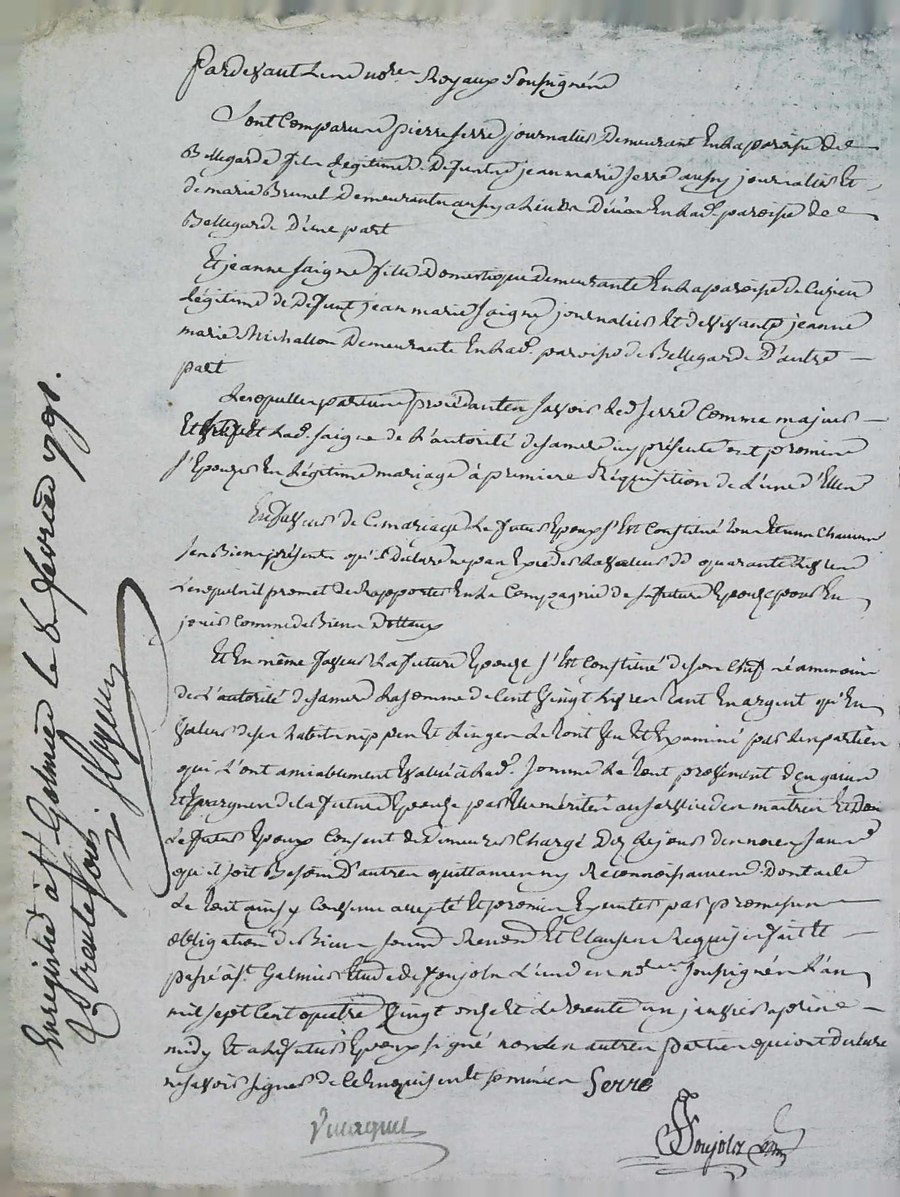 Pardevant les nores Royaux Soussignés
Sont Comparus pierre serre journalier Demeurant En la paroisse de
Bellegarde fils Légitime de Defunt jean marie serre aussy journalier Et
de marie Brunel Demeurants aussy a En lad. paroisse de
Bellegarde D'une part
Et jeanne saigne fille Domestique Demeurante En la paroisse de Cuzieu
Légitime de Defunt jean marie saigne journalier Et de vivante jeanne
marie Michallon Demeurante En lad. paroisse de Bellegarde D'autre
part
Lesquelles parties procédantes savoir led. serre Comme majeur
Et lad. saigne de L'autorité de sa mere icy présente ont promis
s'Epouser En Légitime mariage à premiere Réquisition de L'une d'Elles
En faveur de Ce mariage Le futur Epoux s'Est Constitué tous Et uns Chacuns
ses Biens présents qu'il Déclare ne pas Exceder La valeur de quarante Livres
Lesquels il promet de Rapporter En la Compagnie de sa future Epouse pour En
jouir Comme de Biens Dottaux
Et En même faveur La future Epouse s'Est Constitué de son Chef néammoins
de L'autorité de sa mere La somme de Cent vingt Livres tant En argent qu'En
valeur de ses habits nippes Et Linges Le tout vu Et Examiné par Les parties
qui L'ont amiablement Evalué à Lad. somme Le tout provenant des gains
Et Epargnes de la future Epouse par Elle mérités au service des maitres Et Dont
Le futur Epoux Consent de Demeurer Chargé Dez Le jour des noces sans
qu'il soit Besoin D'autres quittances ny Reconnoissances. Dont acte
Le tout ainsy Convenu accepté Et promis Exécuter par promesses
obligation de Biens soumis Renonds Et Clauses Requises fait Et
passé à St. Galmier Etude de Ponjolx L'un des nores. Soussignés L'an
mil sept Cent quatre vingt onze Et Le trente un janvier après
midy Et a Le futur Epoux signé non Les autres parties qui ont Déclaré
ne savoir signer de Ce Enquises Et sommées Serre
Enregistré à St Galmier le 8 février 1791.
R trente sous